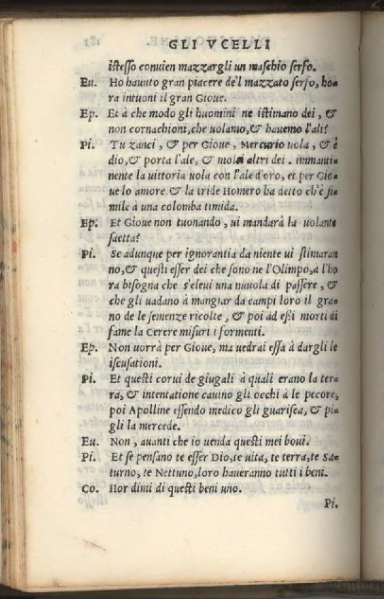 GLI VCELLI
istesso conuien mazzargli un maschio serfo.
Eu. Ho hauuto gran piacere de'l mazzato serfo, hora
ra intuoni il gran Gioue.
Ep. Et à che modo gli huomini ne istimano dei, &
non cornachioni, che uolamo, & hauemo l'ali?
Pi. Tu zanci, & per Gioue, Mercurio uola, & è
dio, & porta l'ale, & molti altri dei. immanti
nente la uittoria uola con l'ale d'oro, et per Gio
ue lo amore & la iride Homero ha detto ch'è si
mile à una colomba timida.
Ep. Et Gioue non tuonando, ui mandarà la uolante
saetta?
Pi. Se adunque per ignorantia da niente ui stimaran
no, & questi esser dei che sono ne l'Olimpo, a l'ho
ra bisogna che s'eleui una nuuola di passère, &
che gli uadano à mangiar da campi loro il gra
no de le semenze ricolte, & poi ad essi morti di
fame la Cerere misuri i formenti.
Ep. Non uorrà per Gioue, ma uedrai essa à dargli le
iscusationi.
Pi. Et questi corui de giugali à quali erano la ter
ra, & intentatione cauino gli occhi à le pecore,
poi Apolline essendo medico gli guarisca, & pi
gli la mercede.
Eu. Non, auanti che io uenda questi mei boui.
Pi. Et se pensano te esser Dio, te uita, te terra, te Sa
turno, te Nettuno, loro haueranno tutti i beni.
Co. Hor dimi di questi beni uno.
Pi.